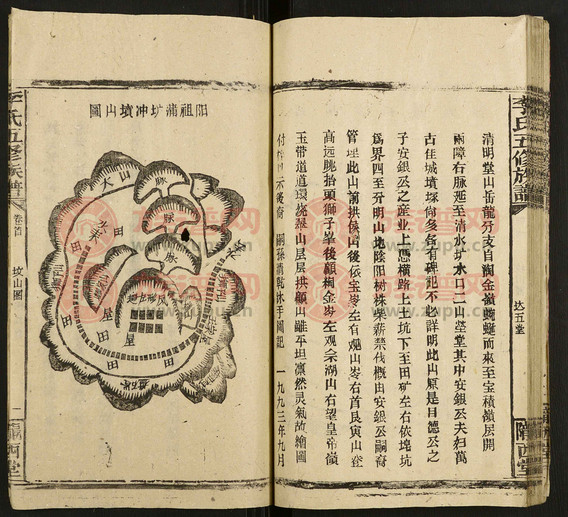 清明堂山岳龍分支自陶金嶺蜿蜒而來至宝積嶺层開
兩障右脉延至清水坑水口二山塋堂其中安銀公夫妇萬
古佳城墳塚尚多各有碑記不必詳明此山原是目德公之
子安銀公之産业上憑橫路上土坑下至田矿左右依垅坑
為界四至分明山地陰阳树株柴薪禁伐概由安銀公嗣裔
管理此山前拱侯山後依宝岑左有观山岑右首艮寅山登
高远眺抬頭獅子峯後顧桐金岑左观宗湖山右望皇帝嶺
玉带道道環繞羅山层层拱顧山雖平坦凛然灵氣故繪圖
付 後裔 嗣孫清乾沐手圖記 一九九三年九月
李氏五修族譜
达五堂
隴西堂
阳祖蒲圹冲墳山圖
李氏五修族譜
卷首
坟山圖
隴西堂
山
脉
脉
田
田
田
田
田
屋
屋